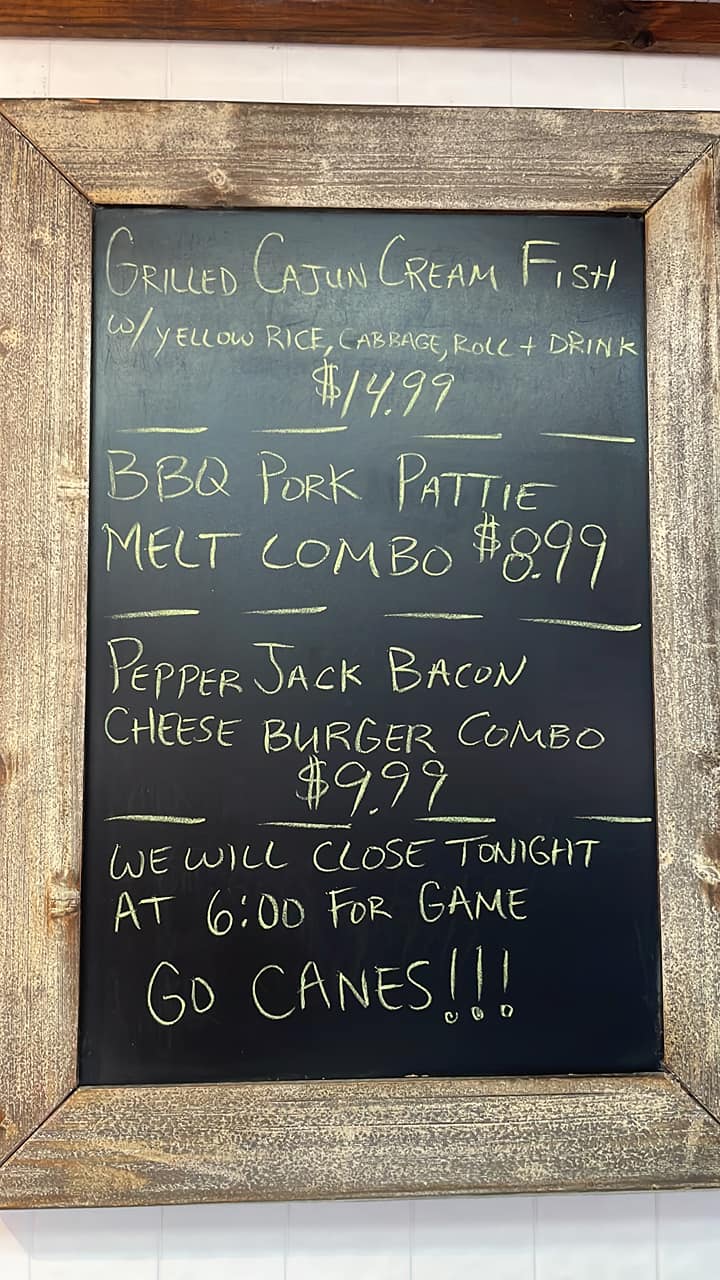 GRILLED CAJUN CREAM FISH
W/ YELLOW RICE, CABBAGE, ROLL + DRINK
$14.99
BBQ PORK PATTIE
MELT COMBO $8.99
PEPPER JACK BACON
CHEESE BURGER COMBO
$9.99
WE WILL CLOSE TONIGHT
AT 6:00 FOR GAME
GO CANES!!!